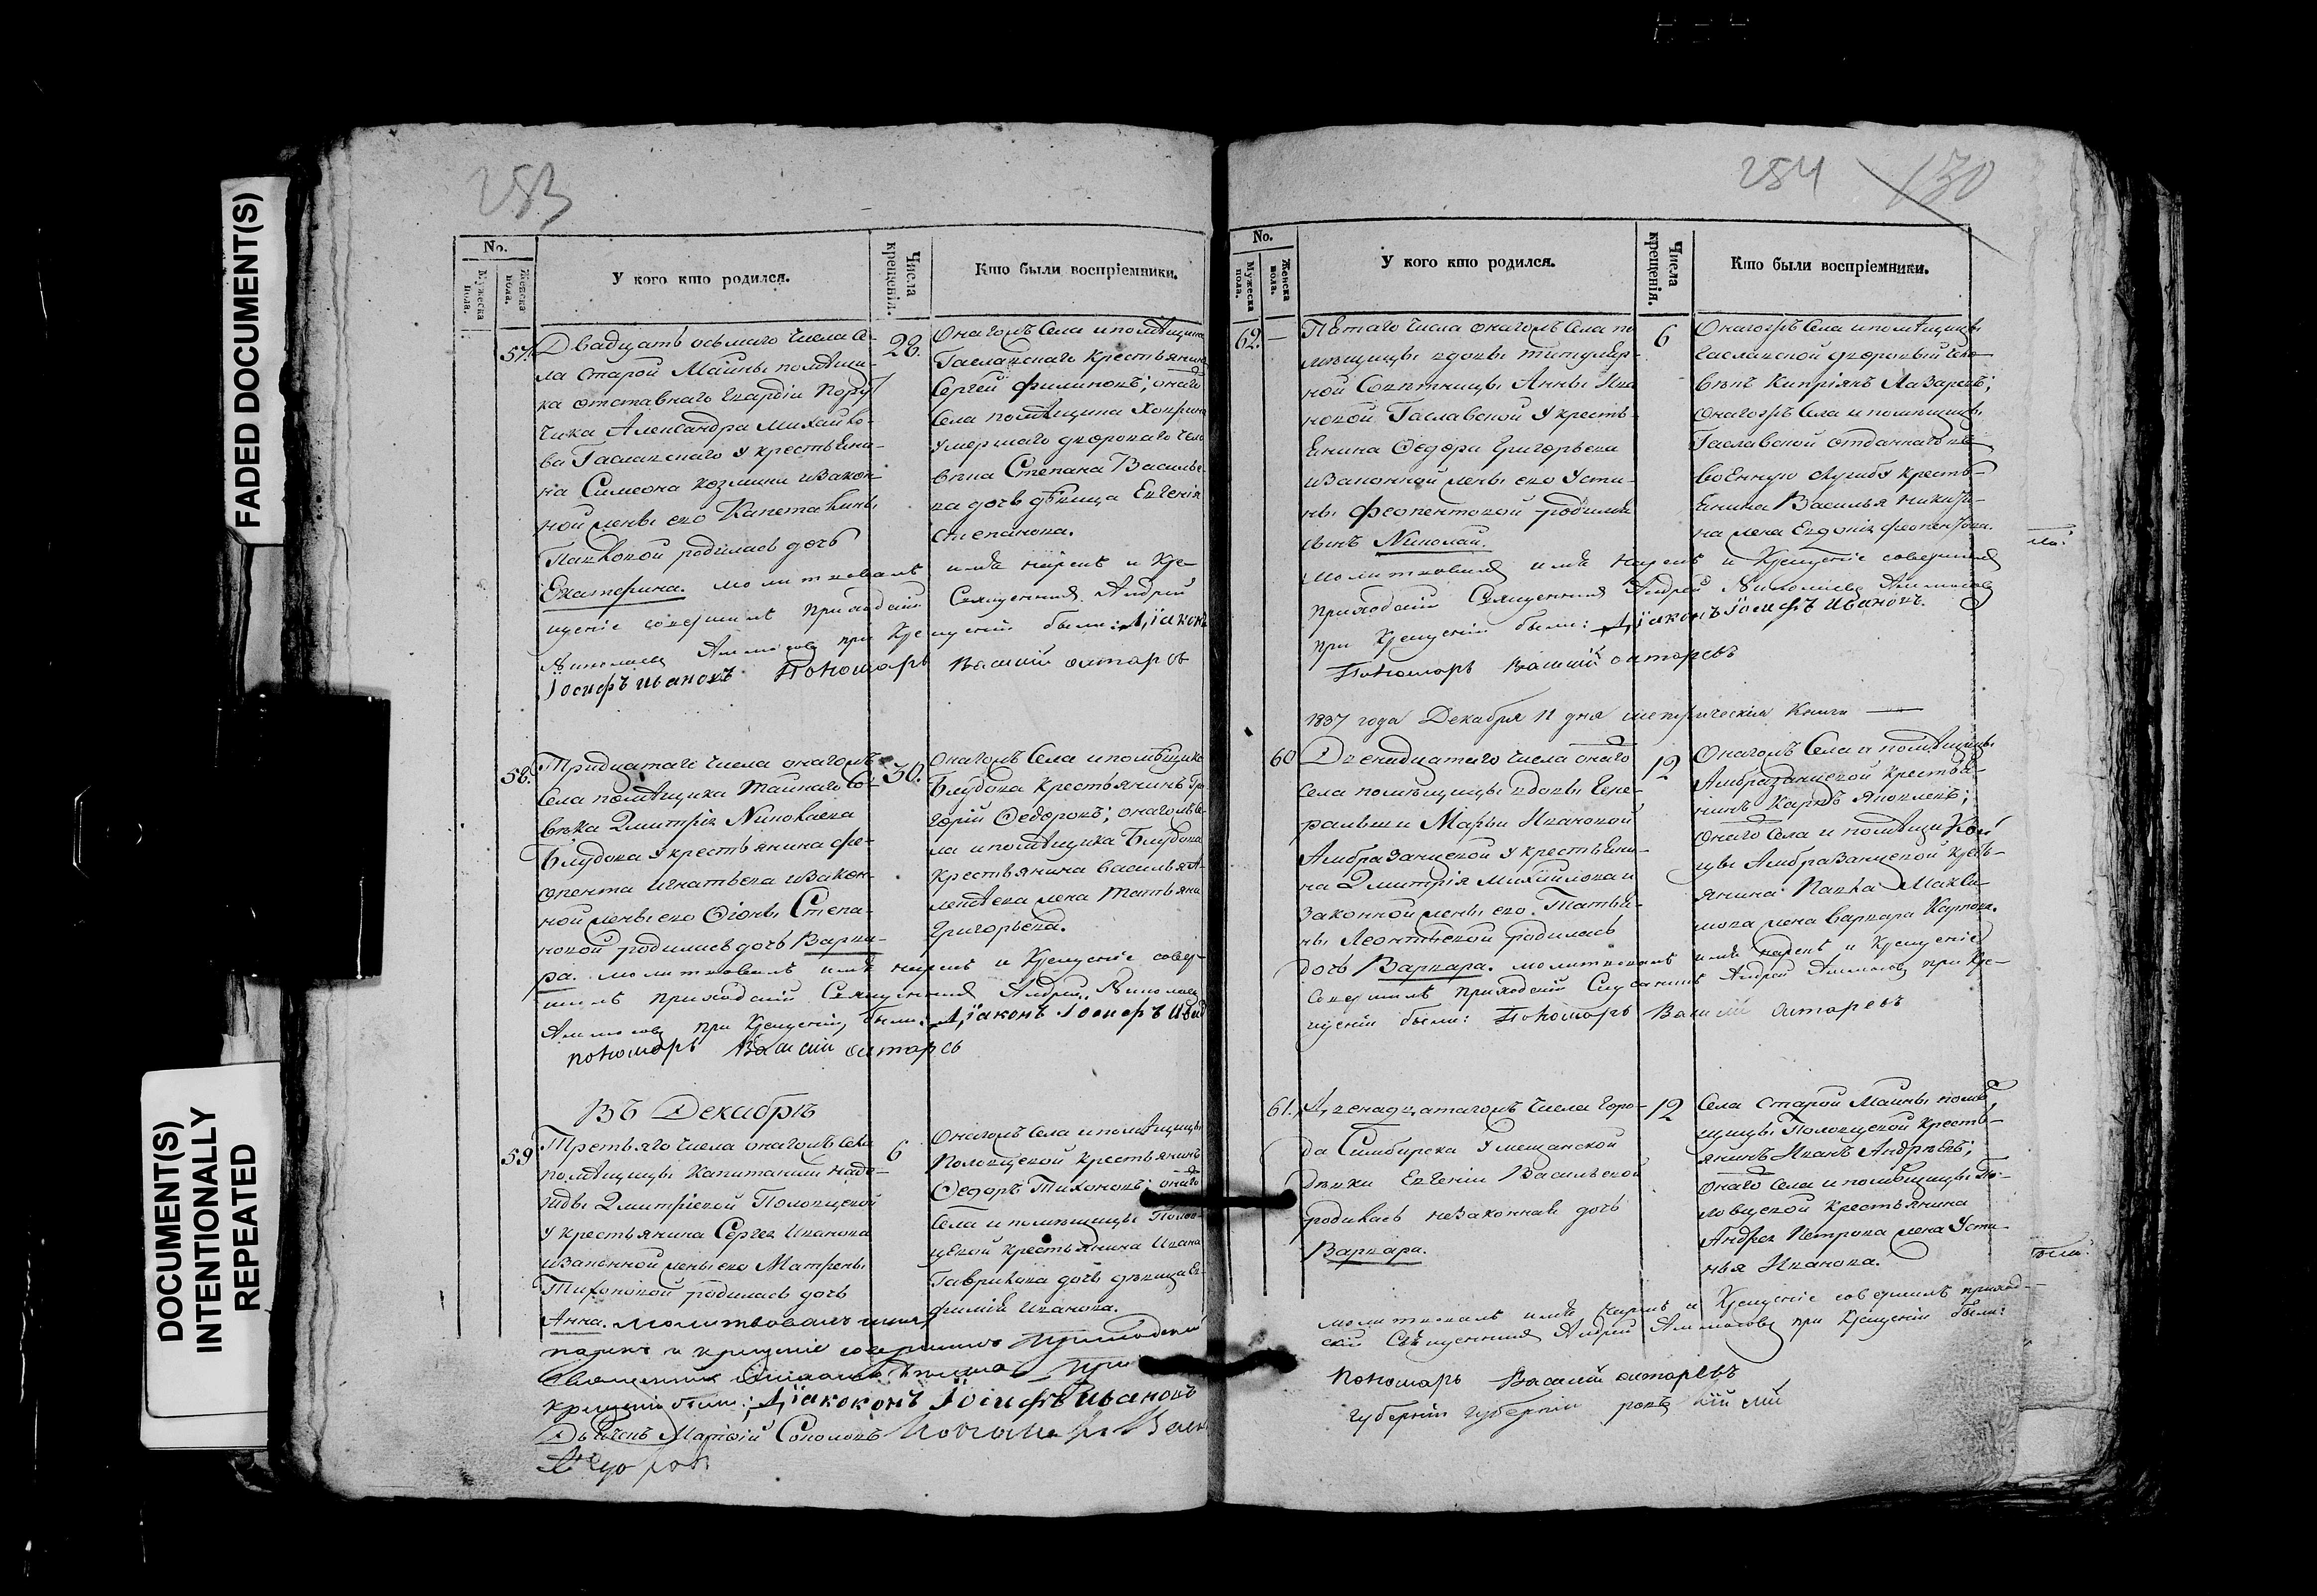 FADED DOCUMENT(S)
DOCUMENT(S)
INTENTIONALLY
REPEATED
253
No.
Мужеска пола.
Женска пола.
У кого кто родился.
Числа крещенія.
Кто были воспріемники.
57.
Двадцать осьмаго числа се-
ла Старой Майны помѣщи-
ка отставнаго Гвардіи Пору-
чика Александра Михайло-
ва Гаславскаго у крестьяни-
на Симеона Козмина и закон-
ной жены его Капеталины
Павловой родилась дочь
Екатерина. молитвовалъ имя нарекъ и кре-
щеніе совершилъ приходскій Священникъ Андрей
Николаевъ Аммосовъ при крещеніи были: Діаконъ
Іосифъ Ивановъ Пономарь Василій
28.
Онагожъ Села и помѣщика
Гаславскаго крестьянинъ
Сергей Филиповъ; онаго
Села помѣщика
умершаго двороваго чело-
вѣка Степана Василье-
ва дочь дѣвица Евгенія
Степанова.
58.
Тридцатаго числа онагожъ
Села помѣщика Тайнаго Со-
вѣтника Дмитрія Николаева
Блудова у крестьянина Фе-
опента Игнатьева и закон-
ной жены его Степа-
новой родилась дочь Варва-
ра. молитвовалъ имя нарекъ и крещеніе совер-
шилъ приходскій Священникъ Андрей Николаевъ
Аммосовъ при крещеніи были: Діаконъ Іосифъ Иван
пономарь Василій
30.
Онагожъ Села и помѣщика
Блудова крестьянинъ Гри-
горій Федоровъ; онагожъ се-
ла и помѣщика Блудова
крестьянина Василья А-
лексѣева жена Татьяна
Григорьева.
Въ Декабрѣ
59
Третьяго числа онагожъ села
помѣщицы Капитанши Наде-
жды Дмитріевой Половцевой
у крестьянина Сергея Иванова
и законной жены его Матрены
Тихоновой родилась дочь
Анна. молитвовалъ имя
нарекъ и крещеніе совершилъ приходскій
Священникъ при
крещеніи были: Діаконъ Іосифъ Ивановъ
Дьячекъ Матфій Соколовъ
6
Онагожъ Села и помѣщицы
Половцевой крестьянинъ
Федоръ Тихоновъ; онаго
Села и помѣщицы Полов-
цевой крестьянина Ивана
Гаврилова дочь дѣвица Ев-
фимія Иванова.
254
130
No.
Мужеска пола.
Женска пола.
У кого кто родился.
Числа крещенія.
Кто были воспріемники.
62. —
Пятаго числа онагожъ Села по-
мѣщицы вдовы титуляр-
ной Совѣтницы Анны Ива-
новой Гаславской у кресть-
янина Федора Григорьева
и законной жены его Усти-
ньи Феопентовой родился
сынъ Николай.
молитвовалъ имя нарекъ и крещеніе совершилъ
приходскій Священникъ Андрей Николаевъ Аммосовъ
при крещеніи были: Діаконъ Іосифъ Ивановъ.
Пономарь Василій
6
Онагожъ Села и помѣщицы
Гаславской дворовый чело-
вѣкъ Кипріянъ Лазаревъ;
онагожъ Села и помѣщицы
Гаславской отданнаго въ
военную службу кресть-
янина Василья
жена Евдокія Феопентова.
1837 года Декабря 11 дня метрическія Книги
60
Двенадцатаго числа онаго
Села помѣщицы вдовы Гене-
ральши Марьи Ивановой
Амбразанцевой у крестьяни-
на Дмитрія Михайлова и
законной жены его Татья-
ны Леонтьевой родилась
дочь Варвара. молитвовалъ имя нарекъ и крещеніе
совершилъ приходскій Священникъ Андрей Аммосовъ при кре-
щеніи были: Пономарь Василій
12
Онагожъ Села и помѣщицы
Амбразанцевой крестья-
нинъ Карпъ Яковлевъ;
онаго Села и помѣщи
цы Амбразанцевой кресть-
янина Павла Макси-
мова жена Варвара Карпова.
61.
Двенадцатагожъ числа горо-
да Симбирска у мещанской
дѣвки Евгеніи Васильевой
родилась незаконная дочь
Варвара.
молитвовалъ имя нарекъ и крещеніе совершилъ приход-
скій Священникъ Андрей Аммосовъ при крещеніи были:
Пономарь Василій
12
Села Старой Майны помѣ-
щицы Половцевой кресть-
янинъ Иванъ Андреевъ;
онаго Села и помѣщицы По-
ловцевой крестьянина
Андрея Петрова жена Усти-
нья Иванова.